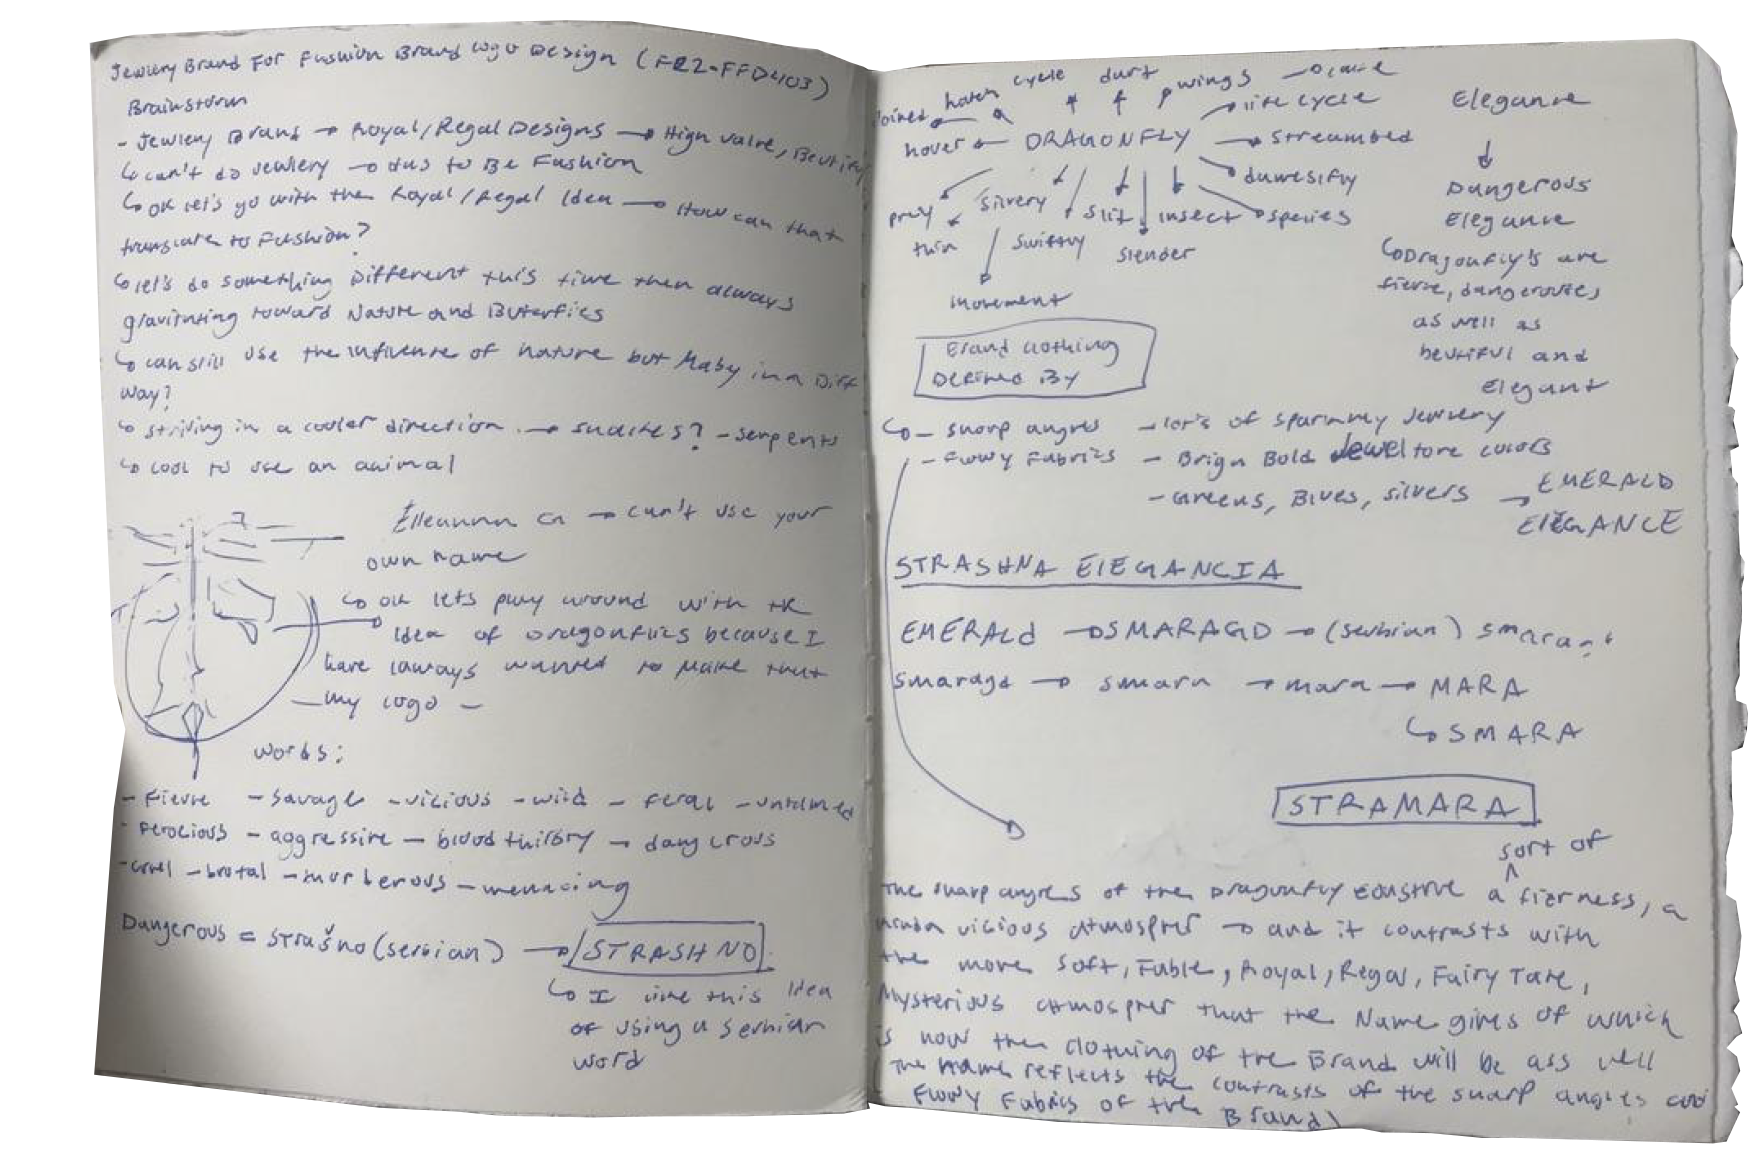 Jewlery Brand For Fashion Brand Logo Design (FRZ-FFD4103)
Brainstorm
- Jewlery Brand → Royal/Regal Designs → High value, Beutiful
↳ can't do Jewlery → Has to Be Fashion
↳ OK let's go with the Royal/Regal Idea → How can that
translate to Fashion?
↳ let's do something Different this time then always
gravitating toward Nature and Buterflies
↳ can still use the influence of nature but Maby in a Diff
way?
↳ striving in a cooler direction → snakes? - serpents
↳ cool to use an animal
→ can't use your
own name
↳ OK lets play around with the
Idea of Dragonflies because I
have always wanted to make that
— my logo —
words:
- fierce - savage - vicious - wild - feral - untamed
- ferocious - aggressive - bloodthirsty - dangerous
- cruel - brutal - murderous - menacing
Dangerous = strašno (serbian) → STRASHNO
↳ I like this Idea
of using a serbian
word
hatch cycle dart wings
joined life cycle
hover ← DRAGONFLY → streambed
damselfly
prey silvery slit insect species
thin swiftly slender
movement
Elegance
↓
Dangerous
Elegance
↳ Dragonfly's are
fierce, dangerous
as well as
beutiful and
Elegant
Brand clothing
Defined By
↳ - sharp angles - lot's of sparkly Jewlery
- Flowy Fabrics - Brigh Bold Jewel tone colors
- Greens, Blues, silvers → EMERALD
ElEGANCE
STRASHNA ElEGANCIA
EMERAld → SMARAGD → (serbian) smaragd
smaragd → smara → mara → MARA
↳ SMARA
STRAMARA
sort of
The sharp angles of the Dragonfly a ^ fierness, a
kinda vicious atmospher → and it contrasts with
the more soft, Fable, Royal, Regal, Fairy Tale,
Mysterious atmospher that the Name gives of which
is how the clothing of the Brand will be ass well
The name reflects the contrasts of the sharp angles and
Flowy Fabrics of the Brand)